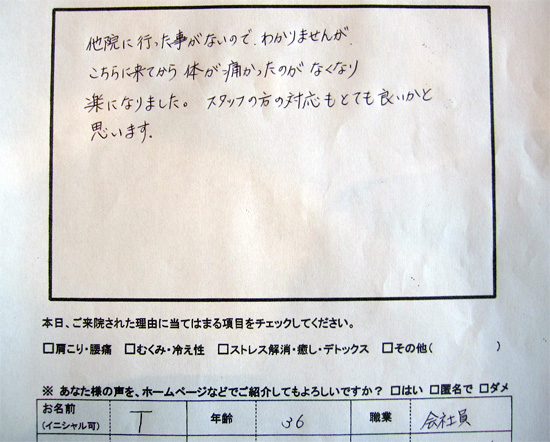 他院に行った事がないので、わかりませんが
こちらに来てから 体が痛かったのが なくなり
楽になりました。 スタッフの方の対応もとても良いかと
思います。
本日、ご来院された理由に当てはまる項目をチェックしてください。
□肩こり・腰痛 □むくみ・冷え性 □ストレス解消・癒し・デトックス □その他( )
※ あなた様の声を、ホームページなどでご紹介してもよろしいですか? □はい □匿名で □ダメ
お名前 (イニシャル可) T 年齢 36 職業 会社員